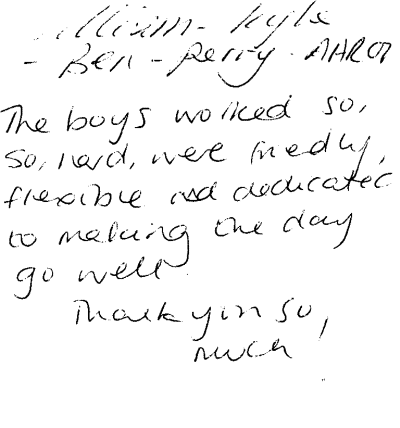 William - Kyle
- Ben - Perry - AARON
The boys worked so,
so, hard, were friendly,
flexible and dedicated
to making the day
go well.
Thank you so,
much